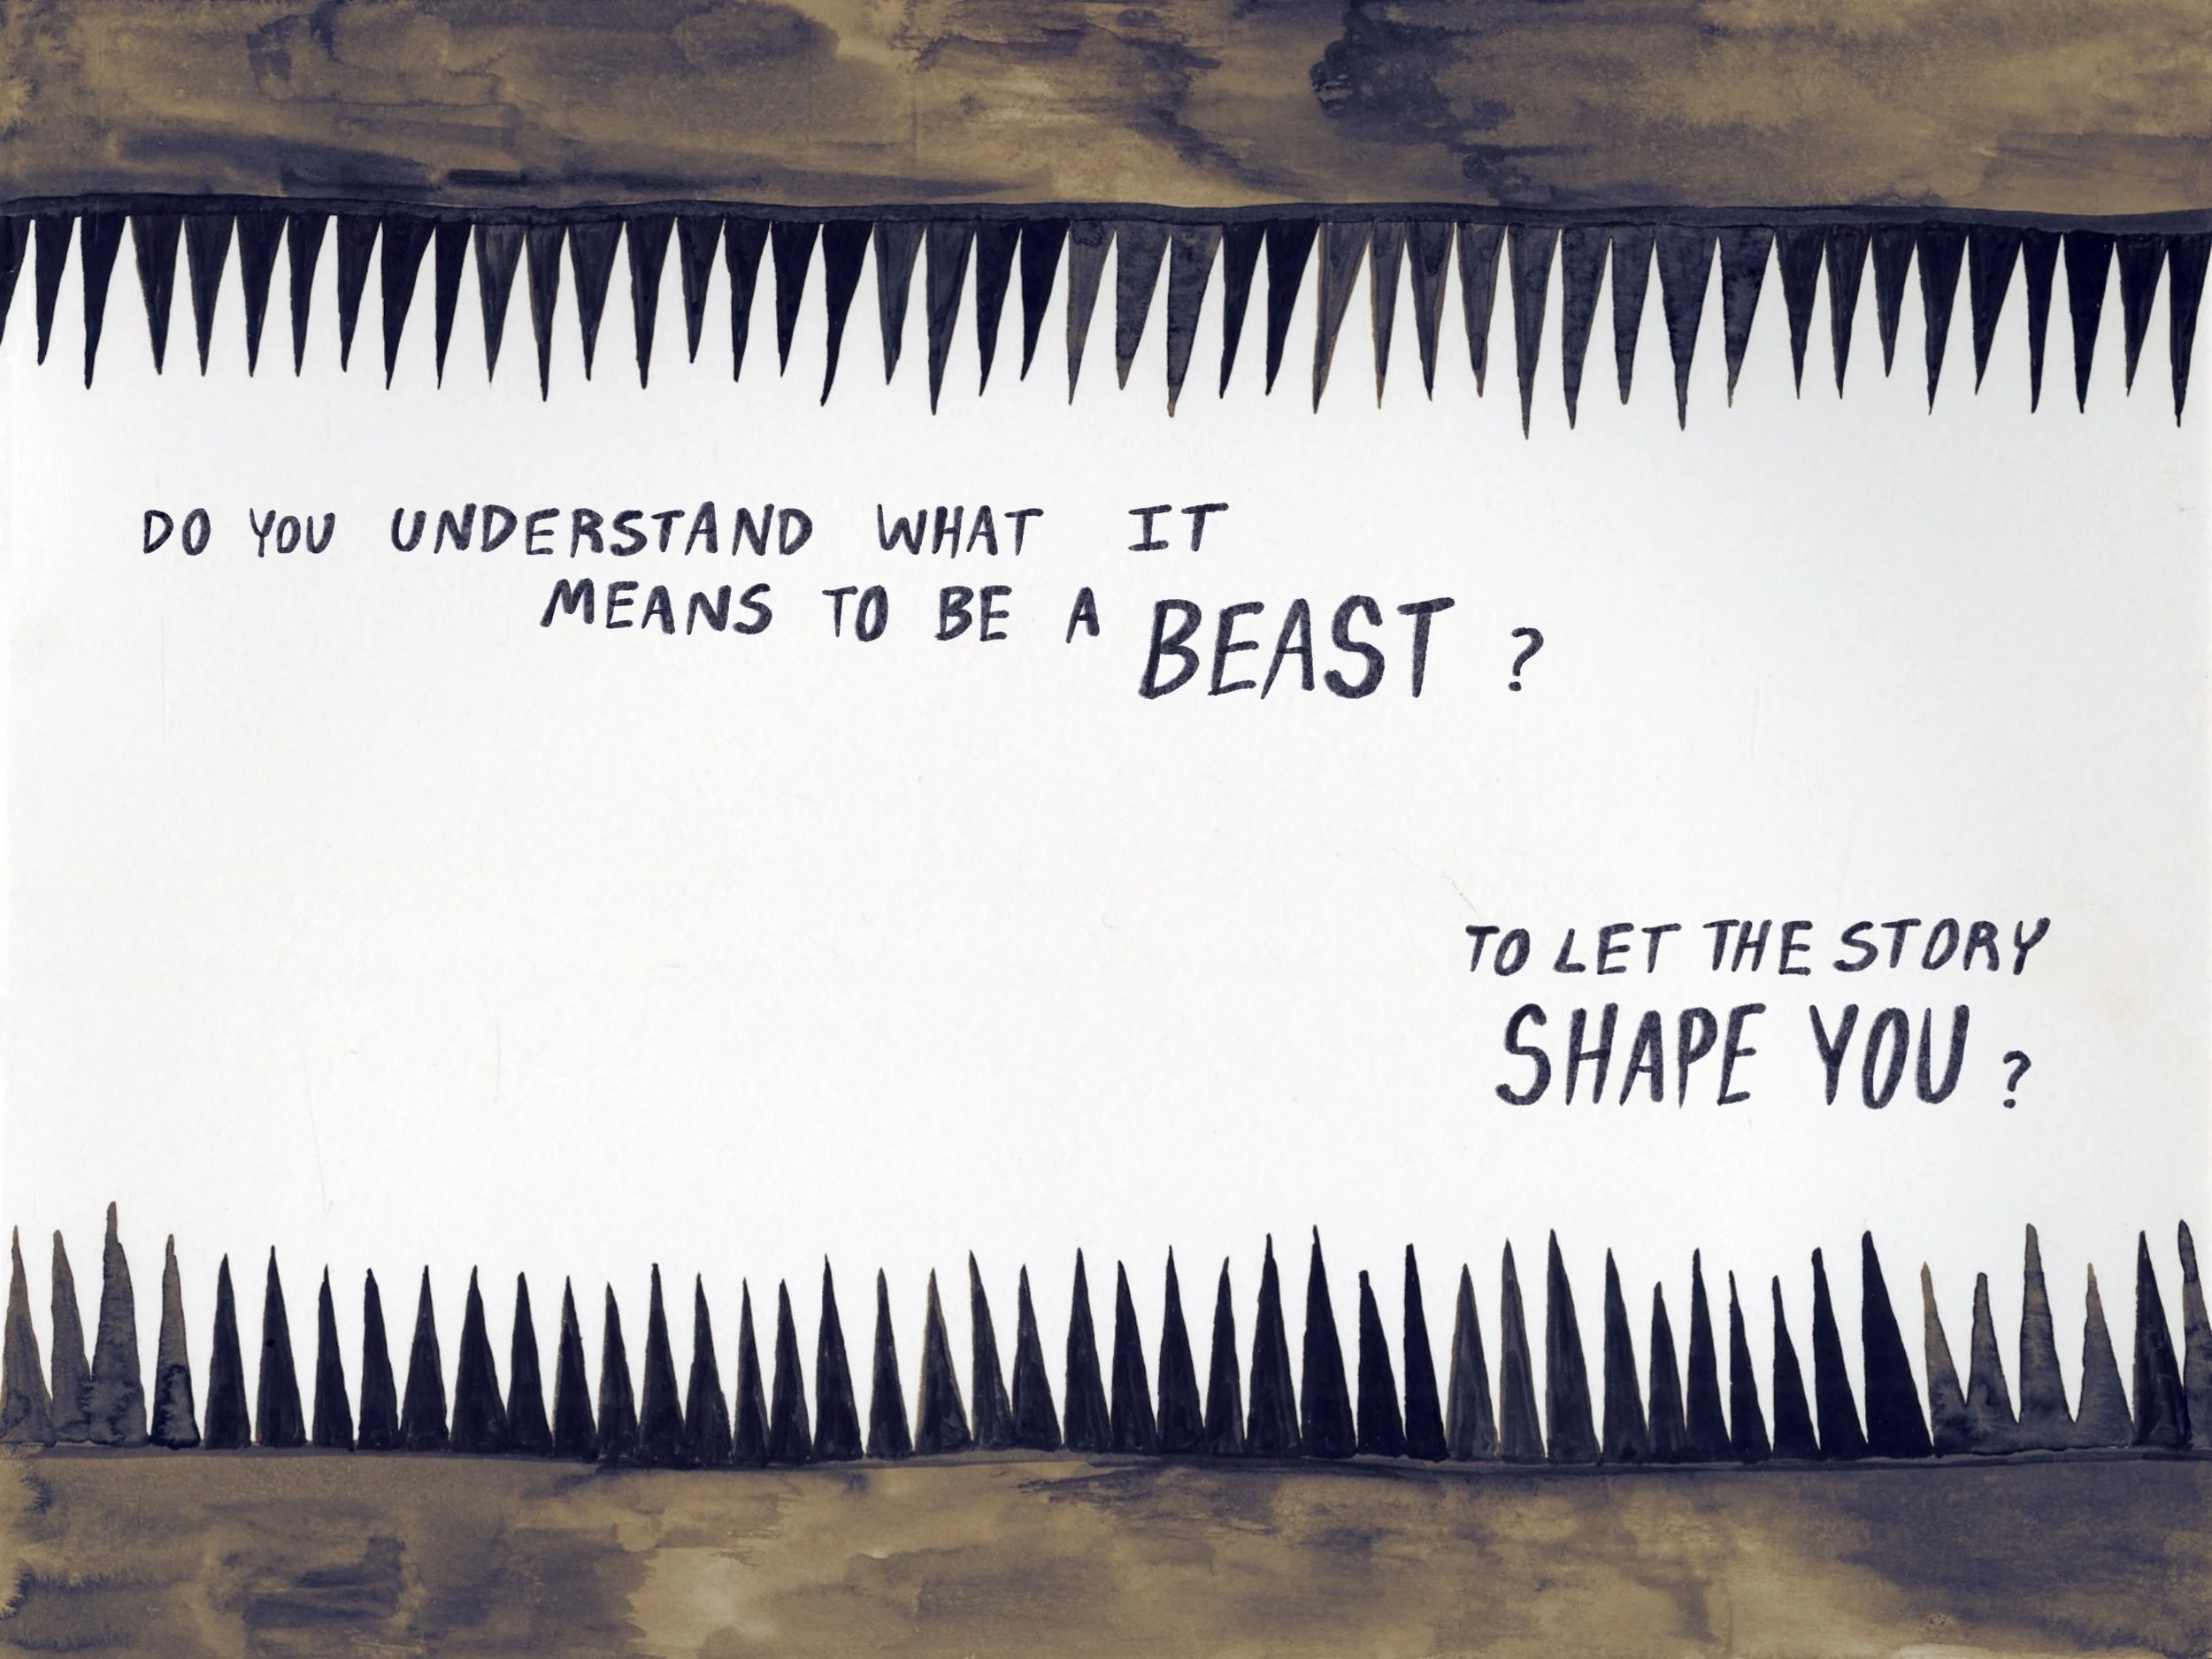 DO YOU UNDERSTAND WHAT IT
MEANS TO BE A BEAST?
TO LET THE STORY
SHAPE YOU?